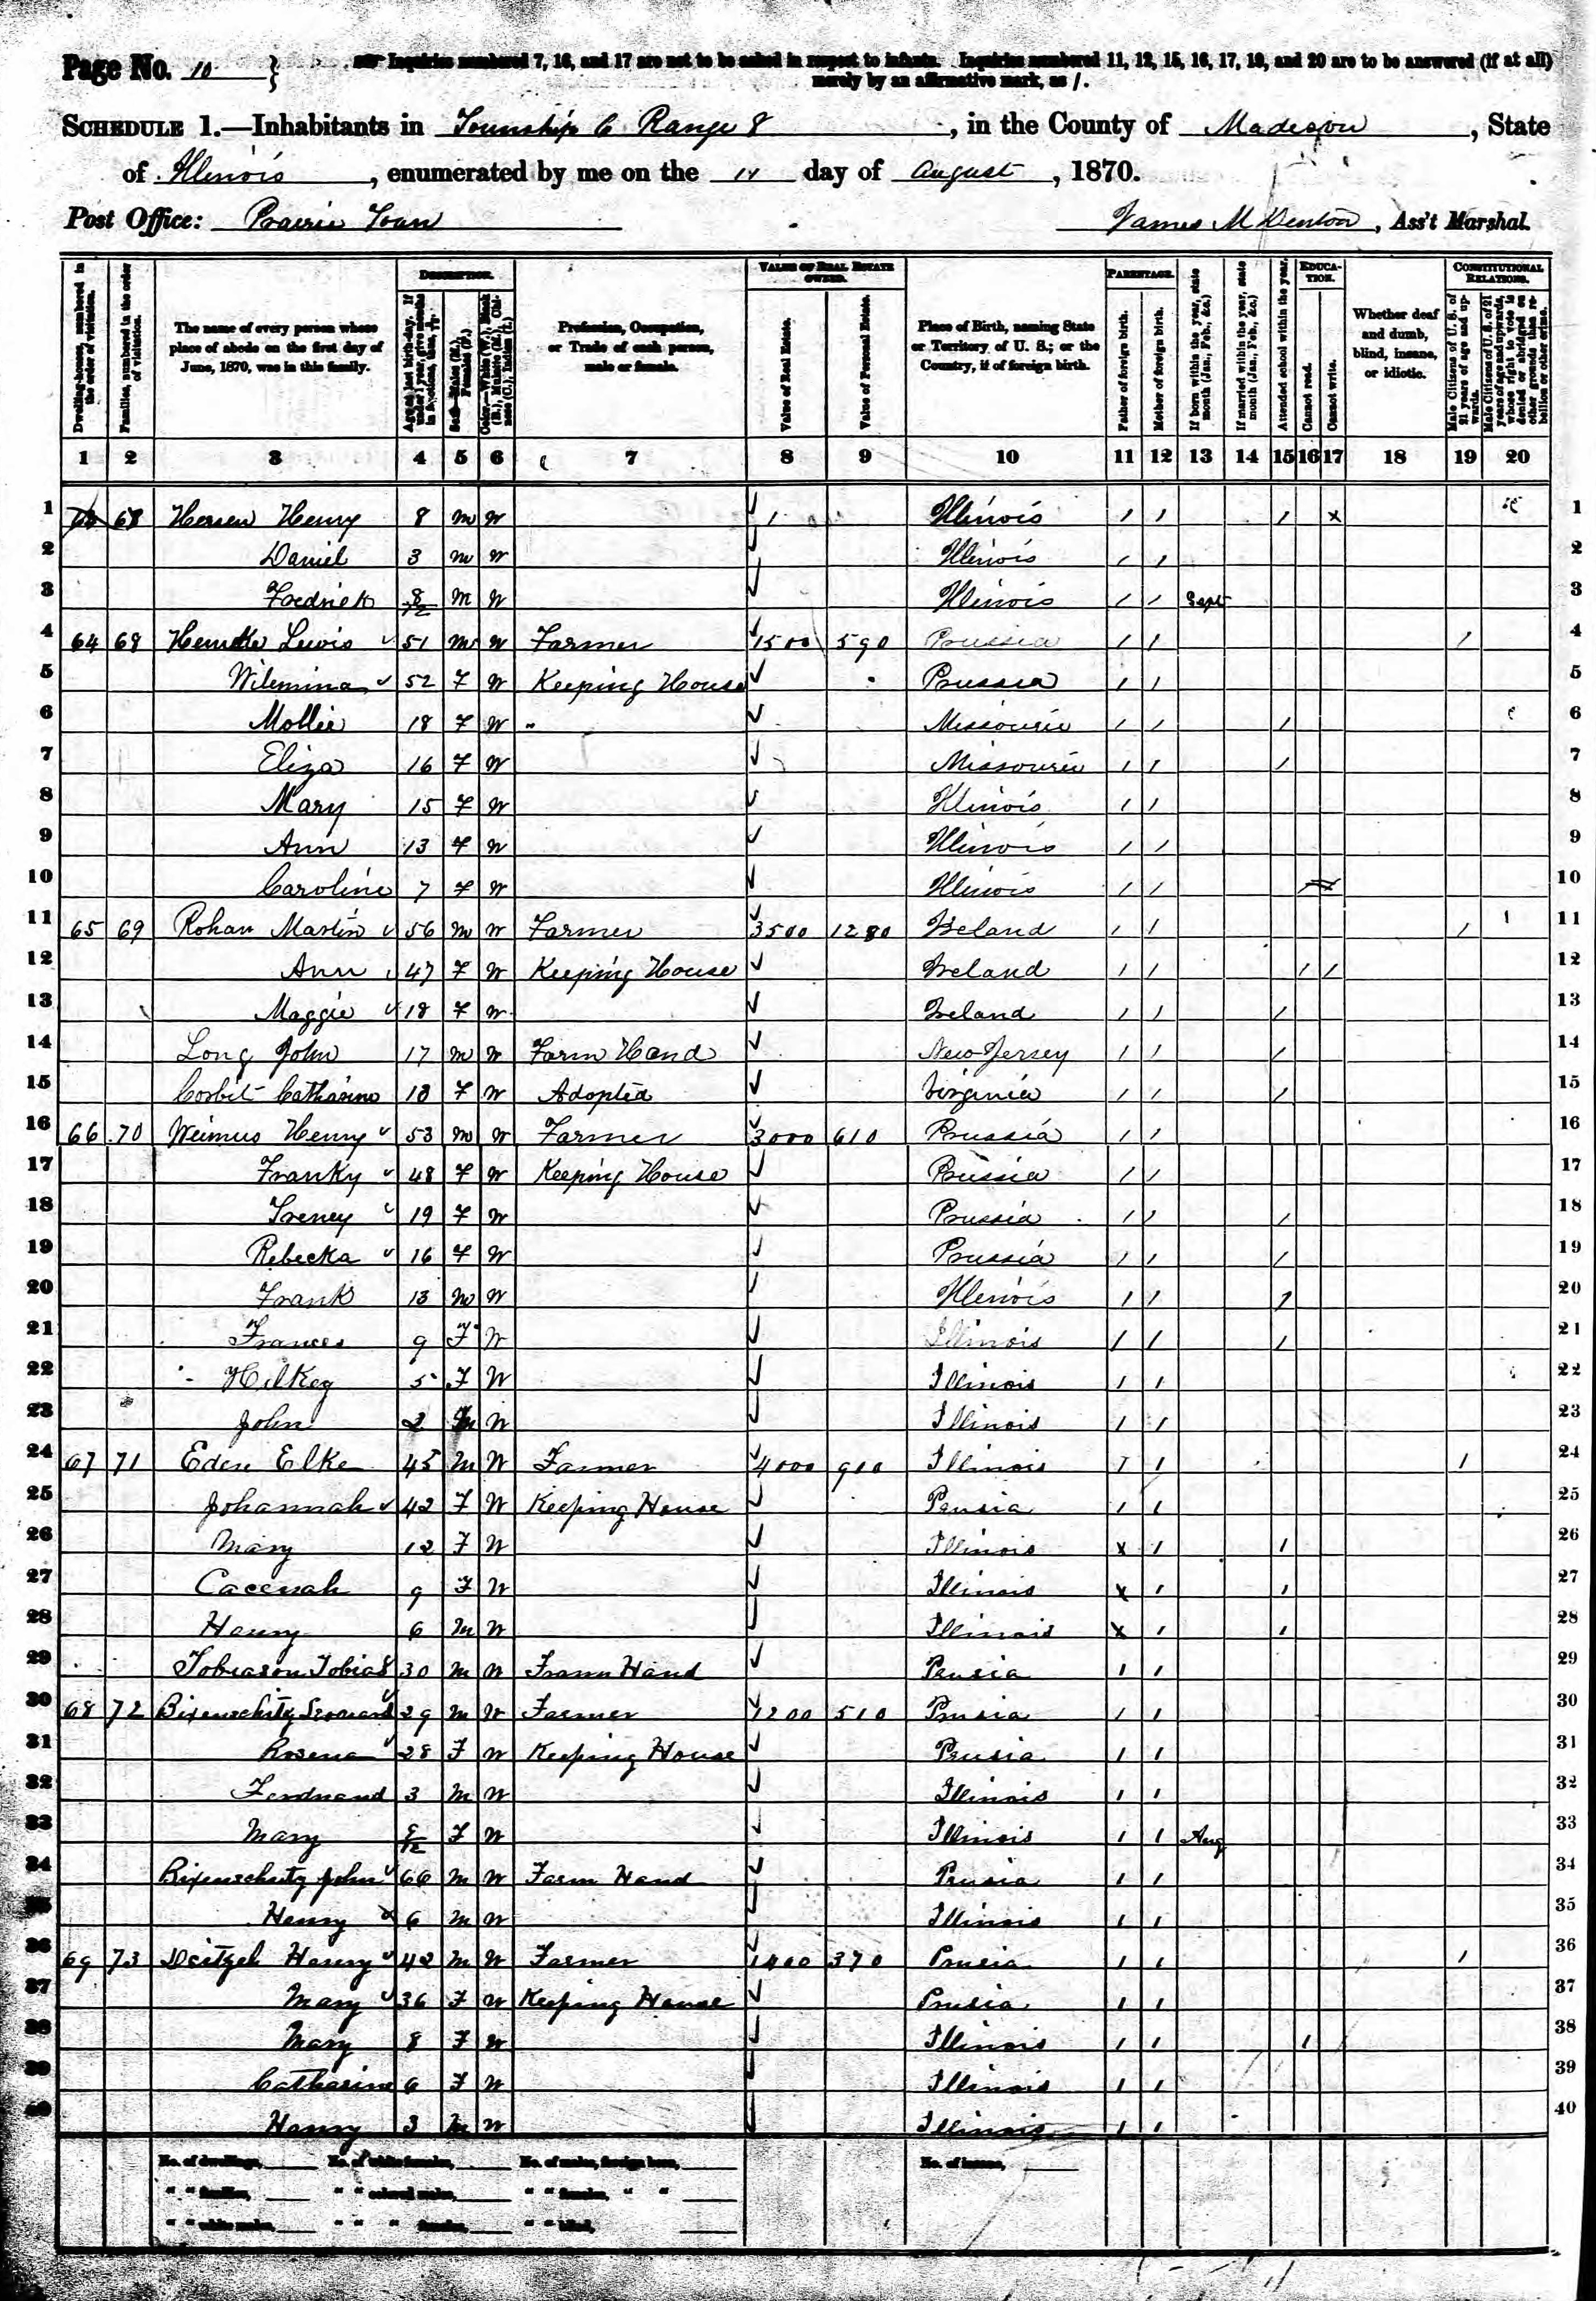 Page No. 10 } Inquiries numbered 7, 16, and 17 are not to be asked in respect to infants. Inquiries numbered 11, 12, 15, 16, 17, 19, and 20 are to be answered (if at all)
merely by an affirmative mark, as /.
SCHEDULE 1.—Inhabitants in Township 6 Range 8, in the County of Madison, State
of Illinois, enumerated by me on the day of August, 1870.
Post Office: Prairie Town James M Denton, Ass't Marshal.
DESCRIPTION. VALUE OF REAL ESTATE OWNED. PARENTAGE. EDUCATION. CONSTITUTIONAL RELATIONS.
Dwelling-houses, numbered in the order of visitation.
Families, numbered in the order of visitation.
The name of every person whose place of abode on the first day of June, 1870, was in this family.
Age at last birth-day. If under 1 year, give months in fractions, thus, 3/12
Sex.—Males (M.), Females (F.)
Color.—White (W.), Black (B.), Mulatto (M.), Chinese (C.), Indian (I.)
Profession, Occupation, or Trade of each person, male or female.
Value of Real Estate.
Value of Personal Estate.
Place of Birth, naming State or Territory of U. S.; or the Country, if of foreign birth.
Father of foreign birth.
Mother of foreign birth.
If born within the year, state month (Jan., Feb., &c.)
If married within the year, state month (Jan., Feb., &c.)
Attended school within the year.
Cannot read.
Cannot write.
Whether deaf and dumb, blind, insane, or idiotic.
Male Citizens of U. S. of 21 years of age and upwards.
Male Citizens of U. S. of 21 years of age and upwards, whose right to vote is denied or abridged on other grounds than rebellion or other crime.
1 2 3 4 5 6 7 8 9 10 11 12 13 14 15 16 17 18 19 20
1 68 Henry 8 M W Illinois / / / x 1
2 Daniel 3 M W Illinois / / 2
3 Fredrick 8/12 M W Illinois / / Sept 3
4 64 68 Lewis 51 M W Farmer 1500 590 Prussia / / / 4
5 Wilemina 52 F W Keeping House Prussia / / 5
6 Mollie 18 F W " Missourie / / / 6
7 Eliza 16 F W Missourie / / / 7
8 Mary 15 F W Illinois / / 8
9 Ann 13 F W Illinois / / 9
10 Caroline 7 F W Illinois / / 10
11 65 69 Rohan Martin 56 M W Farmer 3500 1280 Ireland / / / 11
12 Ann 47 F W Keeping House Ireland / / / / 12
13 Maggie 18 F W Ireland / / / 13
14 Long John 17 M W Farm Hand New Jersey / / / 14
15 Corbit Catharine 10 F W Adopted Virginia / / / 15
16 66 70 Weimus Henry 53 M W Farmer 3000 610 Prussia / / 16
17 Franky 48 F W Keeping House Prussia / / 17
18 Treney 19 F W Prussia / / / 18
19 Rebecka 16 F W Prussia / / / 19
20 Frank 13 M W Illinois / / / 20
21 Frances 9 F W Illinois / / / 21
22 Hilkey 5 F W Illinois / / 22
23 John 2 M W Illinois / / 23
24 67 71 Eden Elke 45 M W Farmer 4000 900 Illinois / / / 24
25 Johannah 42 F W Keeping House Prusia / / 25
26 Mary 12 F W Illinois x / / 26
27 9 F W Illinois x / / 27
28 Henry 6 M W Illinois x / / 28
29 Tobiason Tobias 30 M W Farm Hand Prusia / / 29
30 68 72 29 M W Farmer 1200 510 Prusia / / 30
31 Rosena 28 F W Keeping House Prusia / / 31
32 Ferdnand 3 M W Illinois / / 32
33 Mary F W Illinois / / Aug 33
34 John 66 M W Farm Hand Prusia / / 34
35 Henry 6 M W Illinois / / 35
36 69 73 Deitzel Henry 42 M W Farmer 1400 370 Prusia / / / 36
37 Mary 36 F W Keeping House Prusia / / 37
38 Mary 8 F W Illinois / / / / 38
39 Catharine 6 F W Illinois / / 39
40 Henry 3 M W Illinois / / 40
No. of dwellings, No. of white females, No. of males, foreign born, No. of insane,
" " families, " " colored males, " " females, " "
" " white males, " " " females, " " blind,